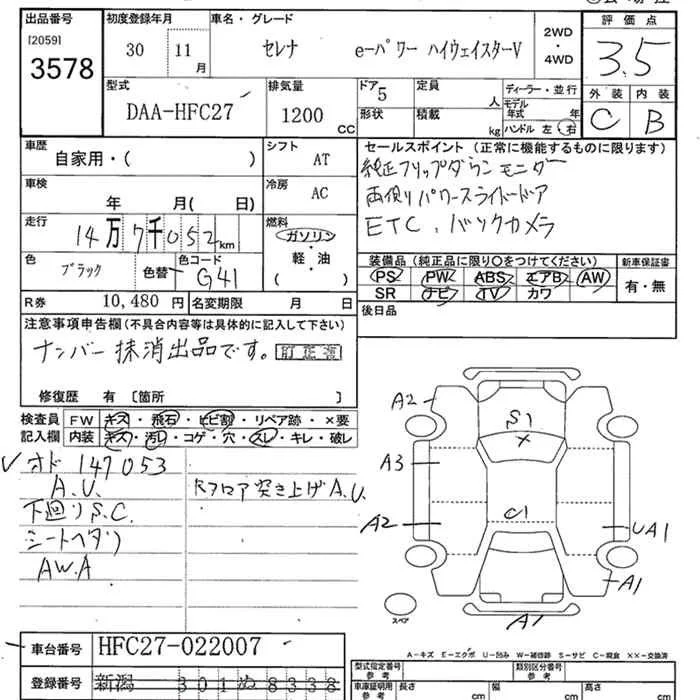 出品番号
[2059]
3578
初度登録年月
30 11 月
車名・グレード
セレナ e-パワー ハイウェイスターV
2WD
・
4WD
評価点
3.5
外装 内装
C B
型式
DAA-HFC27
排気量
1200 CC
ドア 5
形状
定員 人
積載 kg
ディーラー・並行
モデル年式 年
ハンドル 左・右
車歴
自家用・( )
シフト
AT
車検
年 月( 日)
冷房
AC
走行
14万7千052km
燃料
ガソリン
・
軽・油
( )
色
ブラック
色替
色コード
G41
R券 10,480 円
名変期限 月 日
セールスポイント(正常に機能するものに限ります)
純正フリップダウンモニター
両側パワースライドドア
ETC、バックカメラ
装備品(純正品に限り○をつけてください)
PS PW ABS エアB AW
SR ナビ TV カワ
新車保証書
有・無
後日品
注意事項申告欄(不具合内容等は具体的に記入して下さい)
ナンバー抹消出品です。訂正有
修復歴 有 [箇所 ]
検査員記入欄
FW キズ・飛石・ヒビ割・リペア跡・×要
内装 キズ・汚レ・コゲ・穴・スレ・キレ・破レ
オド 147053
A.U.
下廻りS.C.
シートヘタリ
AW.A
Rフロア突き上げA.U.
A2
S1
×
A3
C1
A2
UA1
A1
A1
スペア
A-キズ E-エクボ U-凹み W-補修跡 S-サビ C-腐食 ××-交換済
車台番号 HFC27-022007
登録番号 新潟 301ぬ8338
型式指定番号 参考
類別区分番号 参考
車庫証明用 参考
長さ cm
幅 cm
高さ cm